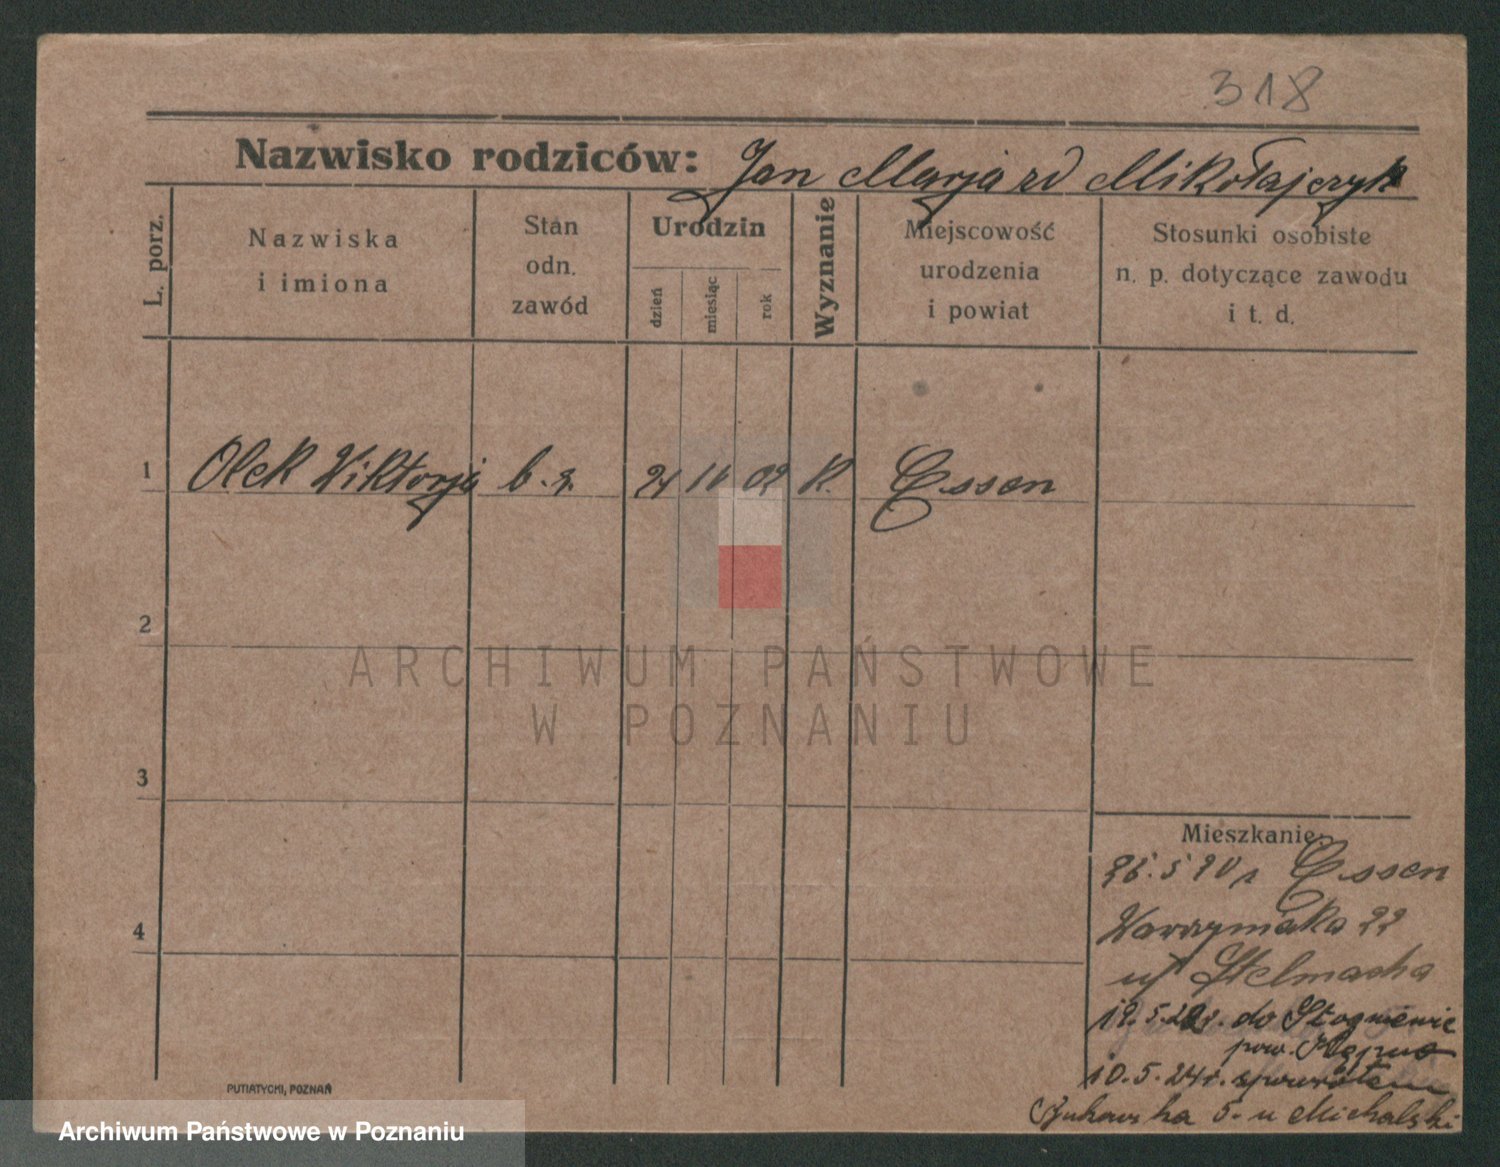 318
Nazwisko rodziców: Jan Marja zd Mikołajczyk
L. porz.
Nazwiska
i imiona
Stan
odn.
zawód
Urodzin
dzień
miesiąc
rok
Wyznanie
Miejscowość
urodzenia
i powiat
Stosunki osobiste
n. p. dotyczące zawodu
i t. d.
1 Olek Wiktorja b. z. 21 02 K. Essen
2
3
4
ARCHIWUM PAŃSTWOWE
W POZNANIU
Mieszkanie
26.5 20 r Essen
22
u Stelmacha
12.5.22r. do
pow. Kępno
10.5.24r. spowrotem
5. u Michalski
PUTIATYCKI, POZNAŃ
Archiwum Państwowe w Poznaniu